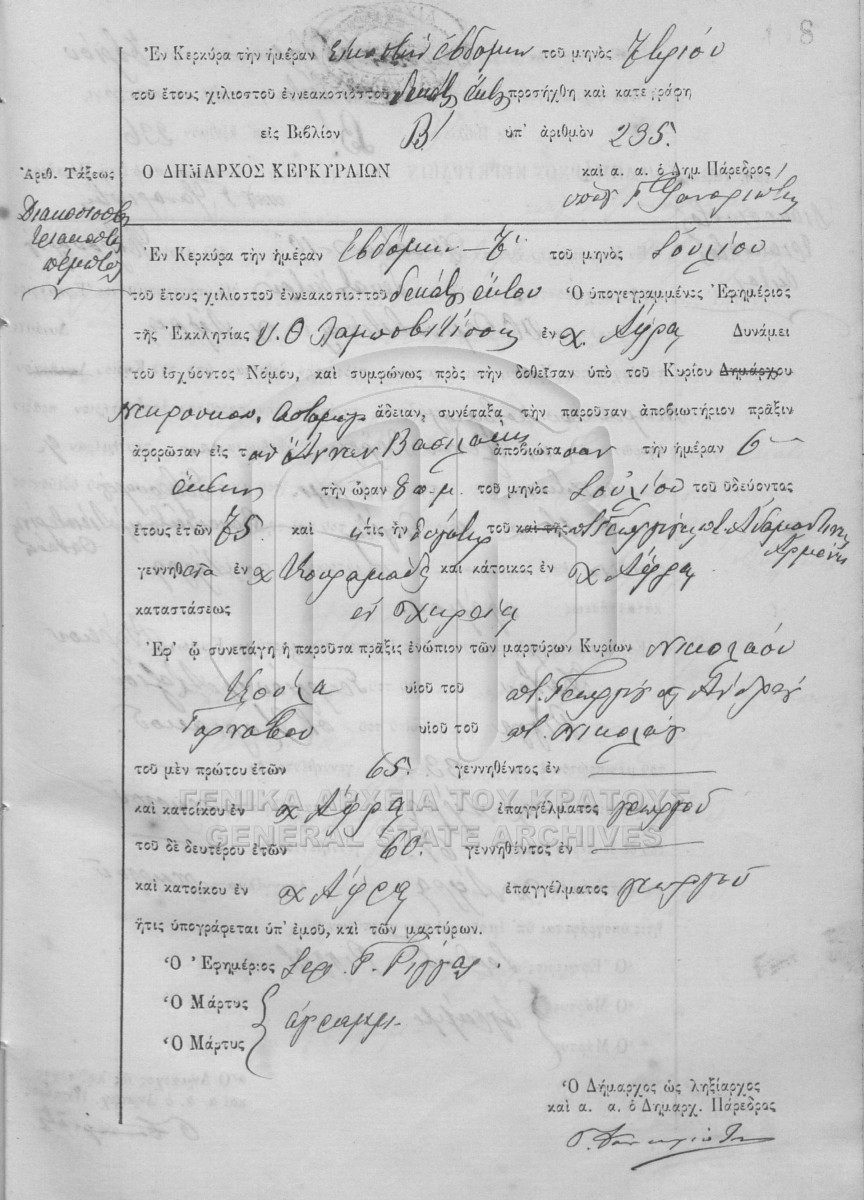 8
Ἐν Κερκύρᾳ τὴν ἡμέραν εἰκοστὴν ἑβδόμην τοῦ μηνὸς 7βρίου
τοῦ ἔτους χιλιοστοῦ ἐννεακοσιοστοῦ δεκάτου ἕκτου προσήχθη καὶ κατεγράφη
εἰς Βιβλίον Β' ὑπ' ἀριθμὸν 235.
Ο ΔΗΜΑΡΧΟΣ ΚΕΡΚΥΡΑΙΩΝ καὶ α. α. ὁ Δημ. Πάρεδρος
Ἀριθ. Τάξεως
Διακοσιοστὴ
τριακοστὴ
πέμπτη
Ἐν Κερκύρᾳ τὴν ἡμέραν Ἑβδόμην – 7 τοῦ μηνὸς Ἰουλίου
τοῦ ἔτους χιλιοστοῦ ἐννεακοσιοστοῦ δεκάτου ἕκτου Ὁ ὑπογεγραμμένος Ἐφημέριος
τῆς Ἐκκλησίας Υ. Θ. Λαμποβιτίσσης ἐν χ. Ἄφρα Δυνάμει
τοῦ ἰσχύοντος Νόμου, καὶ συμφώνως πρὸς τὴν δοθεῖσαν ὑπὸ τοῦ Κυρίου Δημάρχου
ἄδειαν, συνέταξα τὴν παροῦσαν ἀποβιωτήριον πρᾶξιν
ἀφορῶσαν εἰς τὴν Ἄνναν Βασιλάκη ἀποβιώσασαν τὴν ἡμέραν 6
ἕκτην τὴν ὥραν 8 π.μ. τοῦ μηνὸς Ἰουλίου τοῦ ὁδεύοντος
ἔτους ἐτῶν 75 καὶ ἥτις ἦν θυγάτηρ τοῦ καὶ τῆς ποτ. Γεωργίου ποτ. Ἀδαμαντίνης
Ἀρμένη
γεννηθεῖσα ἐν χ. Κουραμάδες καὶ κάτοικος ἐν χ. Ἄφρα
καταστάσεως ἐν χηρείᾳ
Ἐφ' ᾧ συνετάγη ἡ παροῦσα πρᾶξις ἐνώπιον τῶν μαρτύρων Κυρίων Νικολάου
υἱοῦ τοῦ ποτ. Γεωργίου κ Ἀνδρέου
υἱοῦ τοῦ ποτ. Νικολάου
τοῦ μὲν πρώτου ἐτῶν 65. γεννηθέντος ἐν
καὶ κατοίκου ἐν χ Ἄφρα ἐπαγγέλματος γεωργοῦ
ΓΕΝΙΚΑ ΑΡΧΕΙΑ ΤΟΥ ΚΡΑΤΟΥΣ
GENERAL STATE ARCHIVES
τοῦ δὲ δευτέρου ἐτῶν 60. γεννηθέντος ἐν
καὶ κατοίκου ἐν χ Ἄφρα ἐπαγγέλματος γεωργοῦ
ἥτις ὑπογράφεται ὑπ' ἐμοῦ, καὶ τῶν μαρτύρων.
Ὁ Ἐφημέριος Ἱερ. Γ. Ρίγγας.
Ὁ Μάρτυς
ἀγράμμ.
Ὁ Μάρτυς
Ὁ Δήμαρχος ὡς ληξίαρχος
καὶ α. α. ὁ Δημαρχ. Πάρεδρος